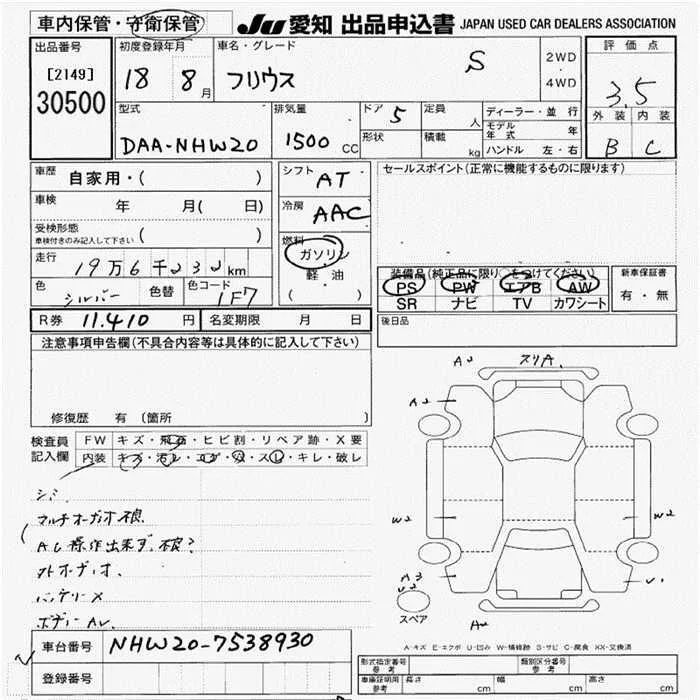 車内保管・守衛保管 JU 愛知 出品申込書 JAPAN USED CAR DEALERS ASSOCIATION
出品番号
[2149]
30500
初度登録年月
18 8月
車名・グレード
フリウス S
2WD
4WD
評価点
3.5
外装 内装
B C
型式
DAA-NHW20
排気量
1500 CC
ドア 5
形状
定員 人
積載 kg
ディーラー・並行
モデル年式 年
ハンドル 左・右
車歴 自家用・( )
車検 年 月( 日)
受検形態
車検付きのみ記入して下さい ( )
走行 19万6千232km
色 シルバー 色替 色コード 1F7
シフト AT
冷房 AAC
燃料
ガソリン
軽・油
( )
セールスポイント(正常に機能するものに限ります)
装備品(純正品に限り○をつけてください)
PS PW エアB AW
SR ナビ TV カワシート
新車保証書
有・無
R券 11.410 円 名変期限 月 日
後日品
注意事項申告欄(不具合内容等は具体的に記入して下さい)
修復歴 有 (箇所 )
検査員記入欄
FW キズ・飛石・ヒビ割・リペア跡・X要
内装 キズ・汚レ・コゲ・穴・スレ・キレ・破レ
シミ
マルチオーディオ不良
AC操作出来ず.不良?
外オーディオ.
バッテリーX
ボディーAU.
A2 スリA.
A2
W2 W2
A3
U2
U1
スペア
A-キズ E-エクボ U-凹み W-補修跡 S-サビ C-腐食 XX-交換済
車台番号 NHW20-7538930
登録番号
型式指定番号 参考
類別区分番号 参考
車庫証明用 参考
長さ cm 幅 cm 高さ cm